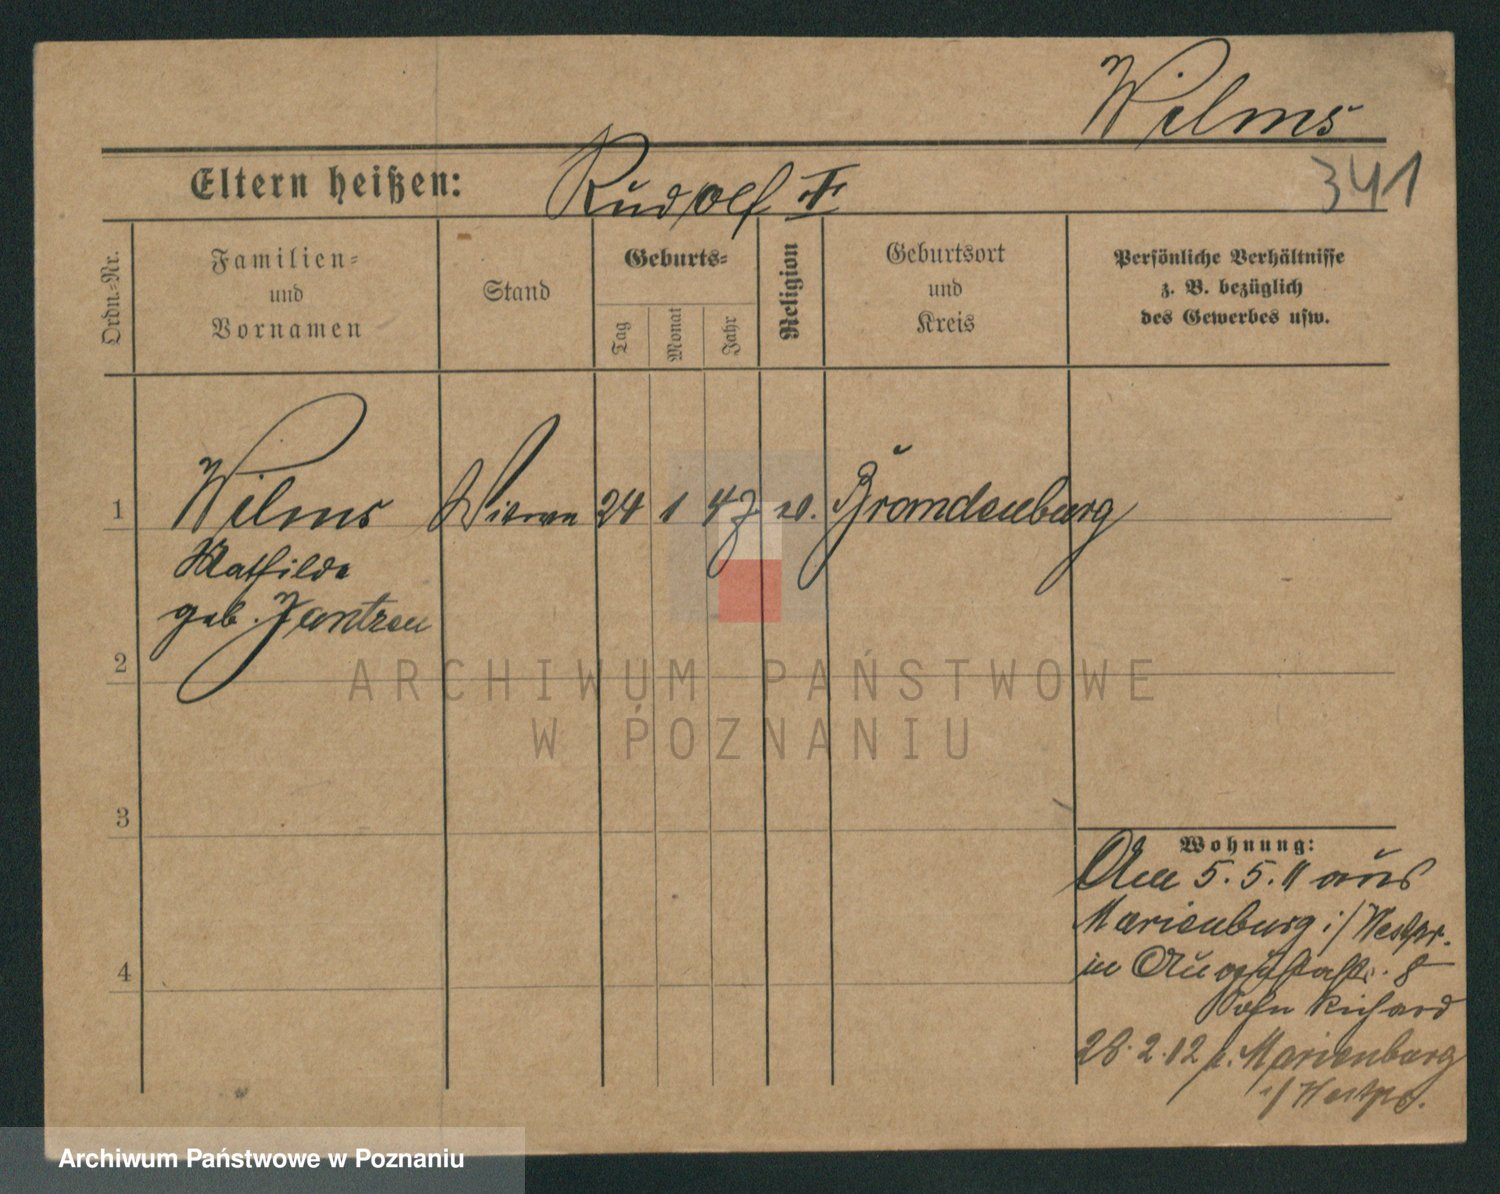 Wilms
341
Eltern heißen: Rudolf
Ordn.-Nr.
Familien-
und
Vornamen
Stand
Geburts-
Tag
Monat
Jahr
Religion
Geburtsort
und
Kreis
Persönliche Verhältnisse
z. B. bezüglich
des Gewerbes usw.
1 Wilms Witwe 24 1 47 Brandenburg
Mathilde
geb. Jantzen
2
3
4
Wohnung:
Am 5.5.11 aus
Marienburg i/Westpr.
in Augustastr. 8
Sohn Richard
28.2.12 n. Marienburg
i/Westpr.
ARCHIWUM PAŃSTWOWE
W POZNANIU
Archiwum Państwowe w Poznaniu